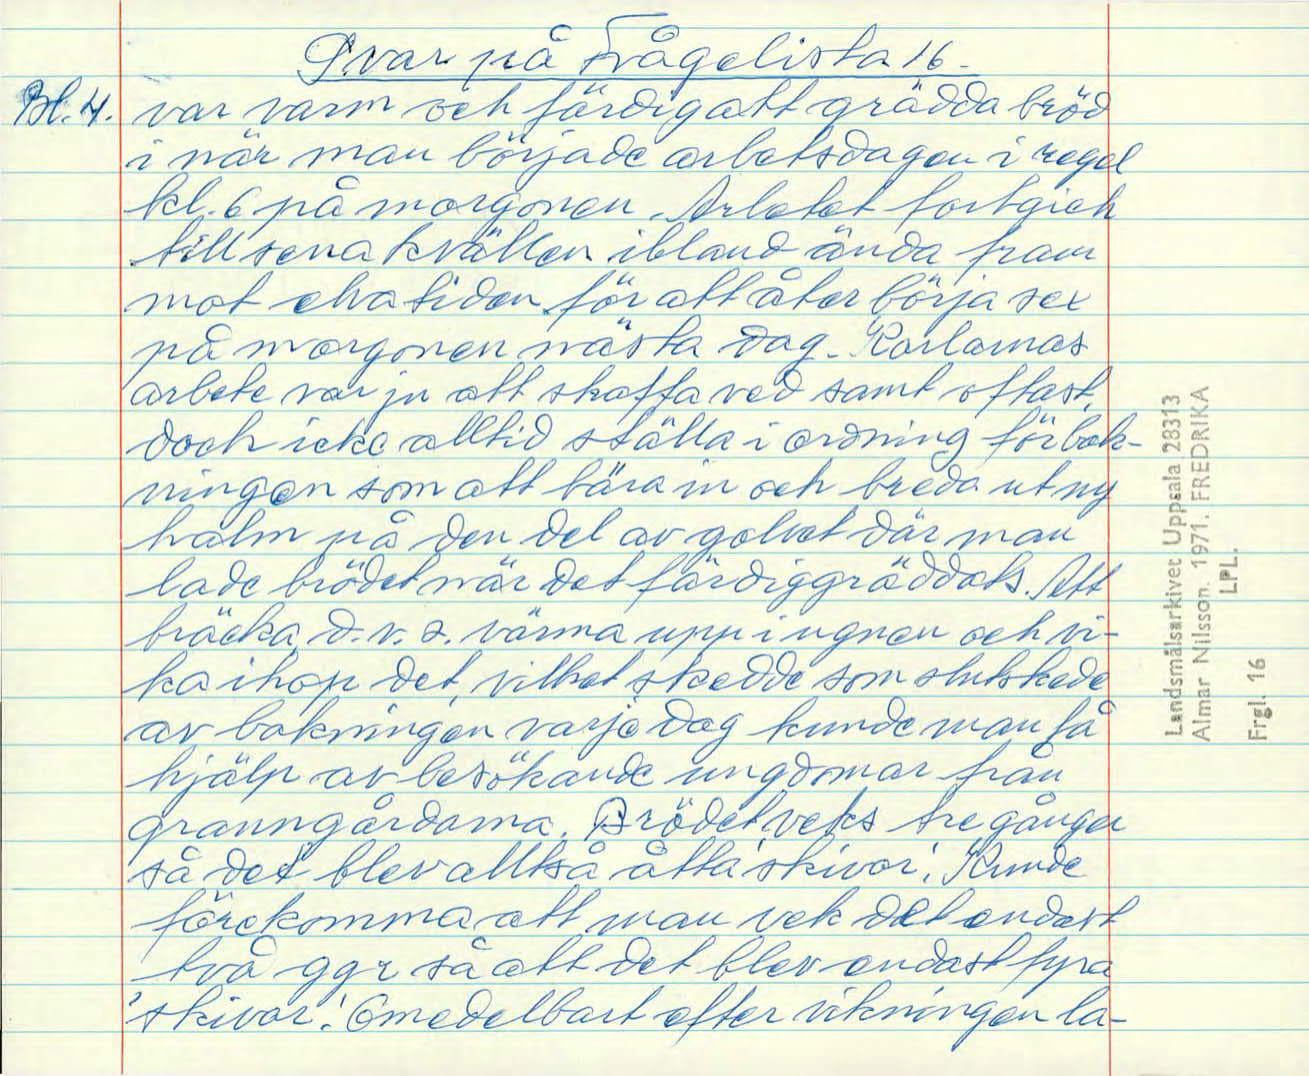 Svar på Frågelista 16.
Bl. 4. var varm och färdig att grädda bröd
i när man började arbetsdagen i regel
kl. 6 på morgonen. Arbetet fortgick
till sena kvällen ibland ända fram
mot elvatiden för att åter börja sex
på morgonen nästa dag. Karlarnas
arbete var ju att skaffa ved samt oftast,
doch icke alltid ställa i ordning för bak-
ningen som att bära in och breda ut ny
halm på den del av golvet där man
lade brödet när det färdiggräddats. Att
bräcka, d.v.s. värma upp i ugnen och vi-
ka ihop det, vilket skedde som slutskede
av bakningen varje dag kunde man få
hjälp av besökande ungdomar från
granngårdarna. Brödet veks tre gånger
så det blev alltså åtta 'skivor'. Kunde
förekomma att man vek det endast
två ggr så att det blev endast fyra
'skivor'. Omedelbart efter vikningen la-
Landsmålsarkivet Uppsala 28313
Almar Nilsson. 1971. FREDRIKA
LPL.
Frgl. 16